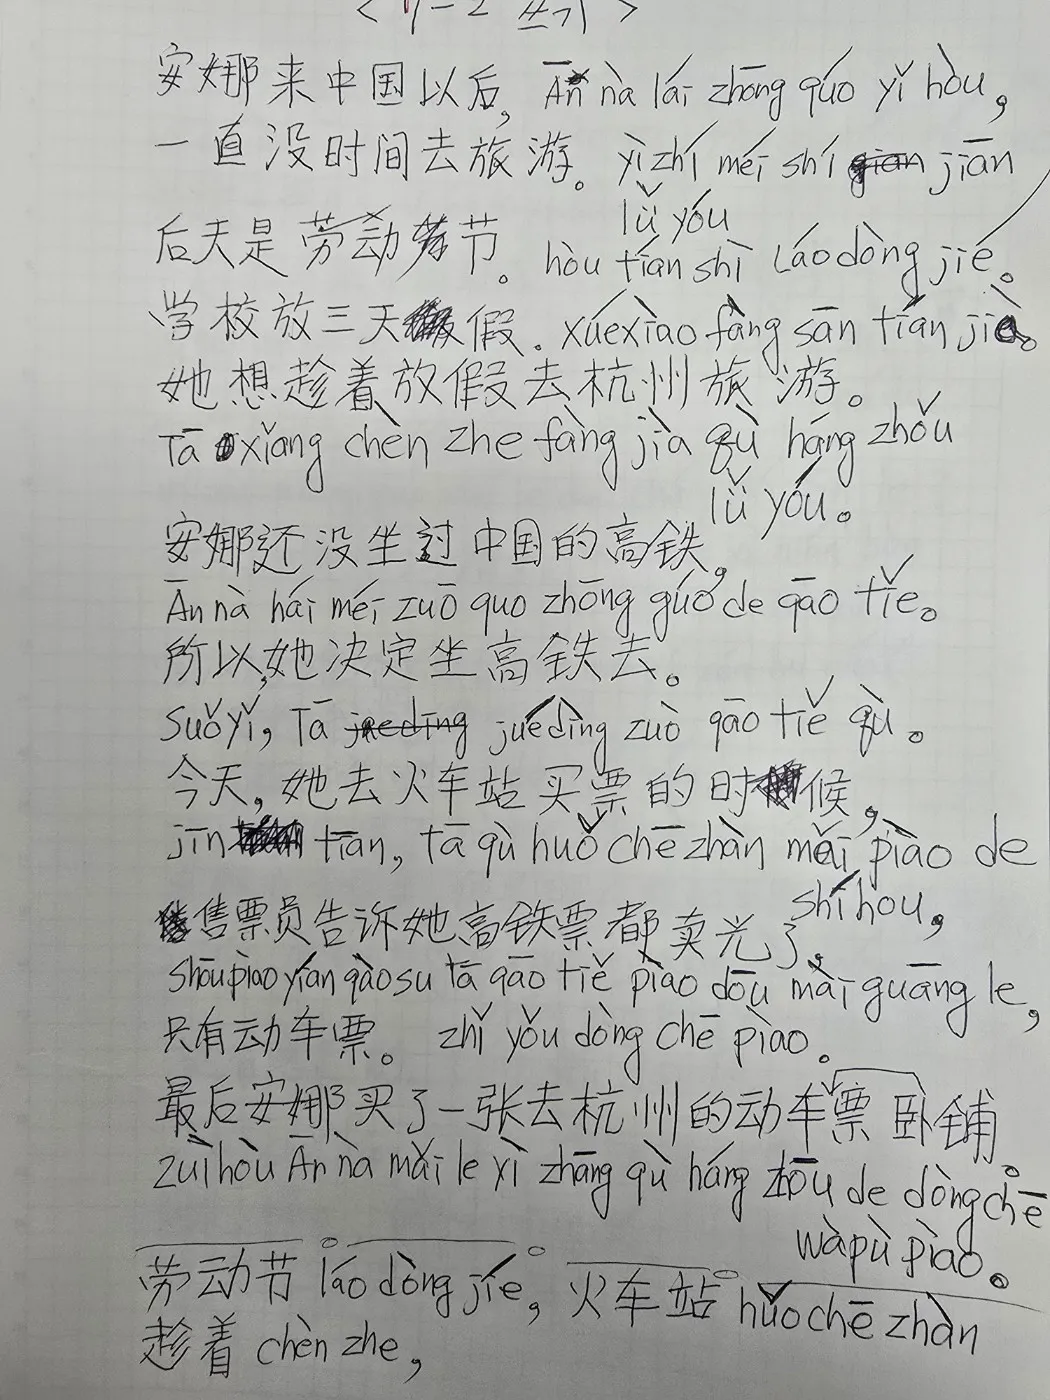 安娜来中国以后, Ān nà lái zhōng quó yǐ hòu,
一直没时间去旅游。 yìzhí méi shí jiān
lǚ yóu
后天是劳动节。 hòu tiān shì Láodòng jié。
学校放三天假. xuéxiào fàng sān tiān jià。
她想趁着放假去杭州旅游。
Tā xiǎng chèn zhe fàng jià qù háng zhǒu
lǚ yóu。
安娜还没坐过中国的高铁。
Ān nà hái méi zuō quo zhōng guó de qāo tiě。
所以,她决定坐高铁去。
suǒyǐ, Tā juédìng zuò qāo tiě qù。
今天,她去火车站买票的时候,
jīn tiān, tā qù huǒ chē zhàn mǎi piào de
shí hou,
售票员告诉她高铁票都卖光了,
shòupiào yían qàosu tā qāo tiě piào dōu mài guāng le,
只有动车票。 zhǐ yǒu dòng chē piào。
最后安娜买了一张去杭州的动车票卧铺。
zuìhòu Ān nà mǎi le yì zhāng qù háng zhōu de dòngchē
wàpù piào。
劳动节 láo dòng jíe, 火车站 huǒchē zhàn
趁着 chèn zhe,